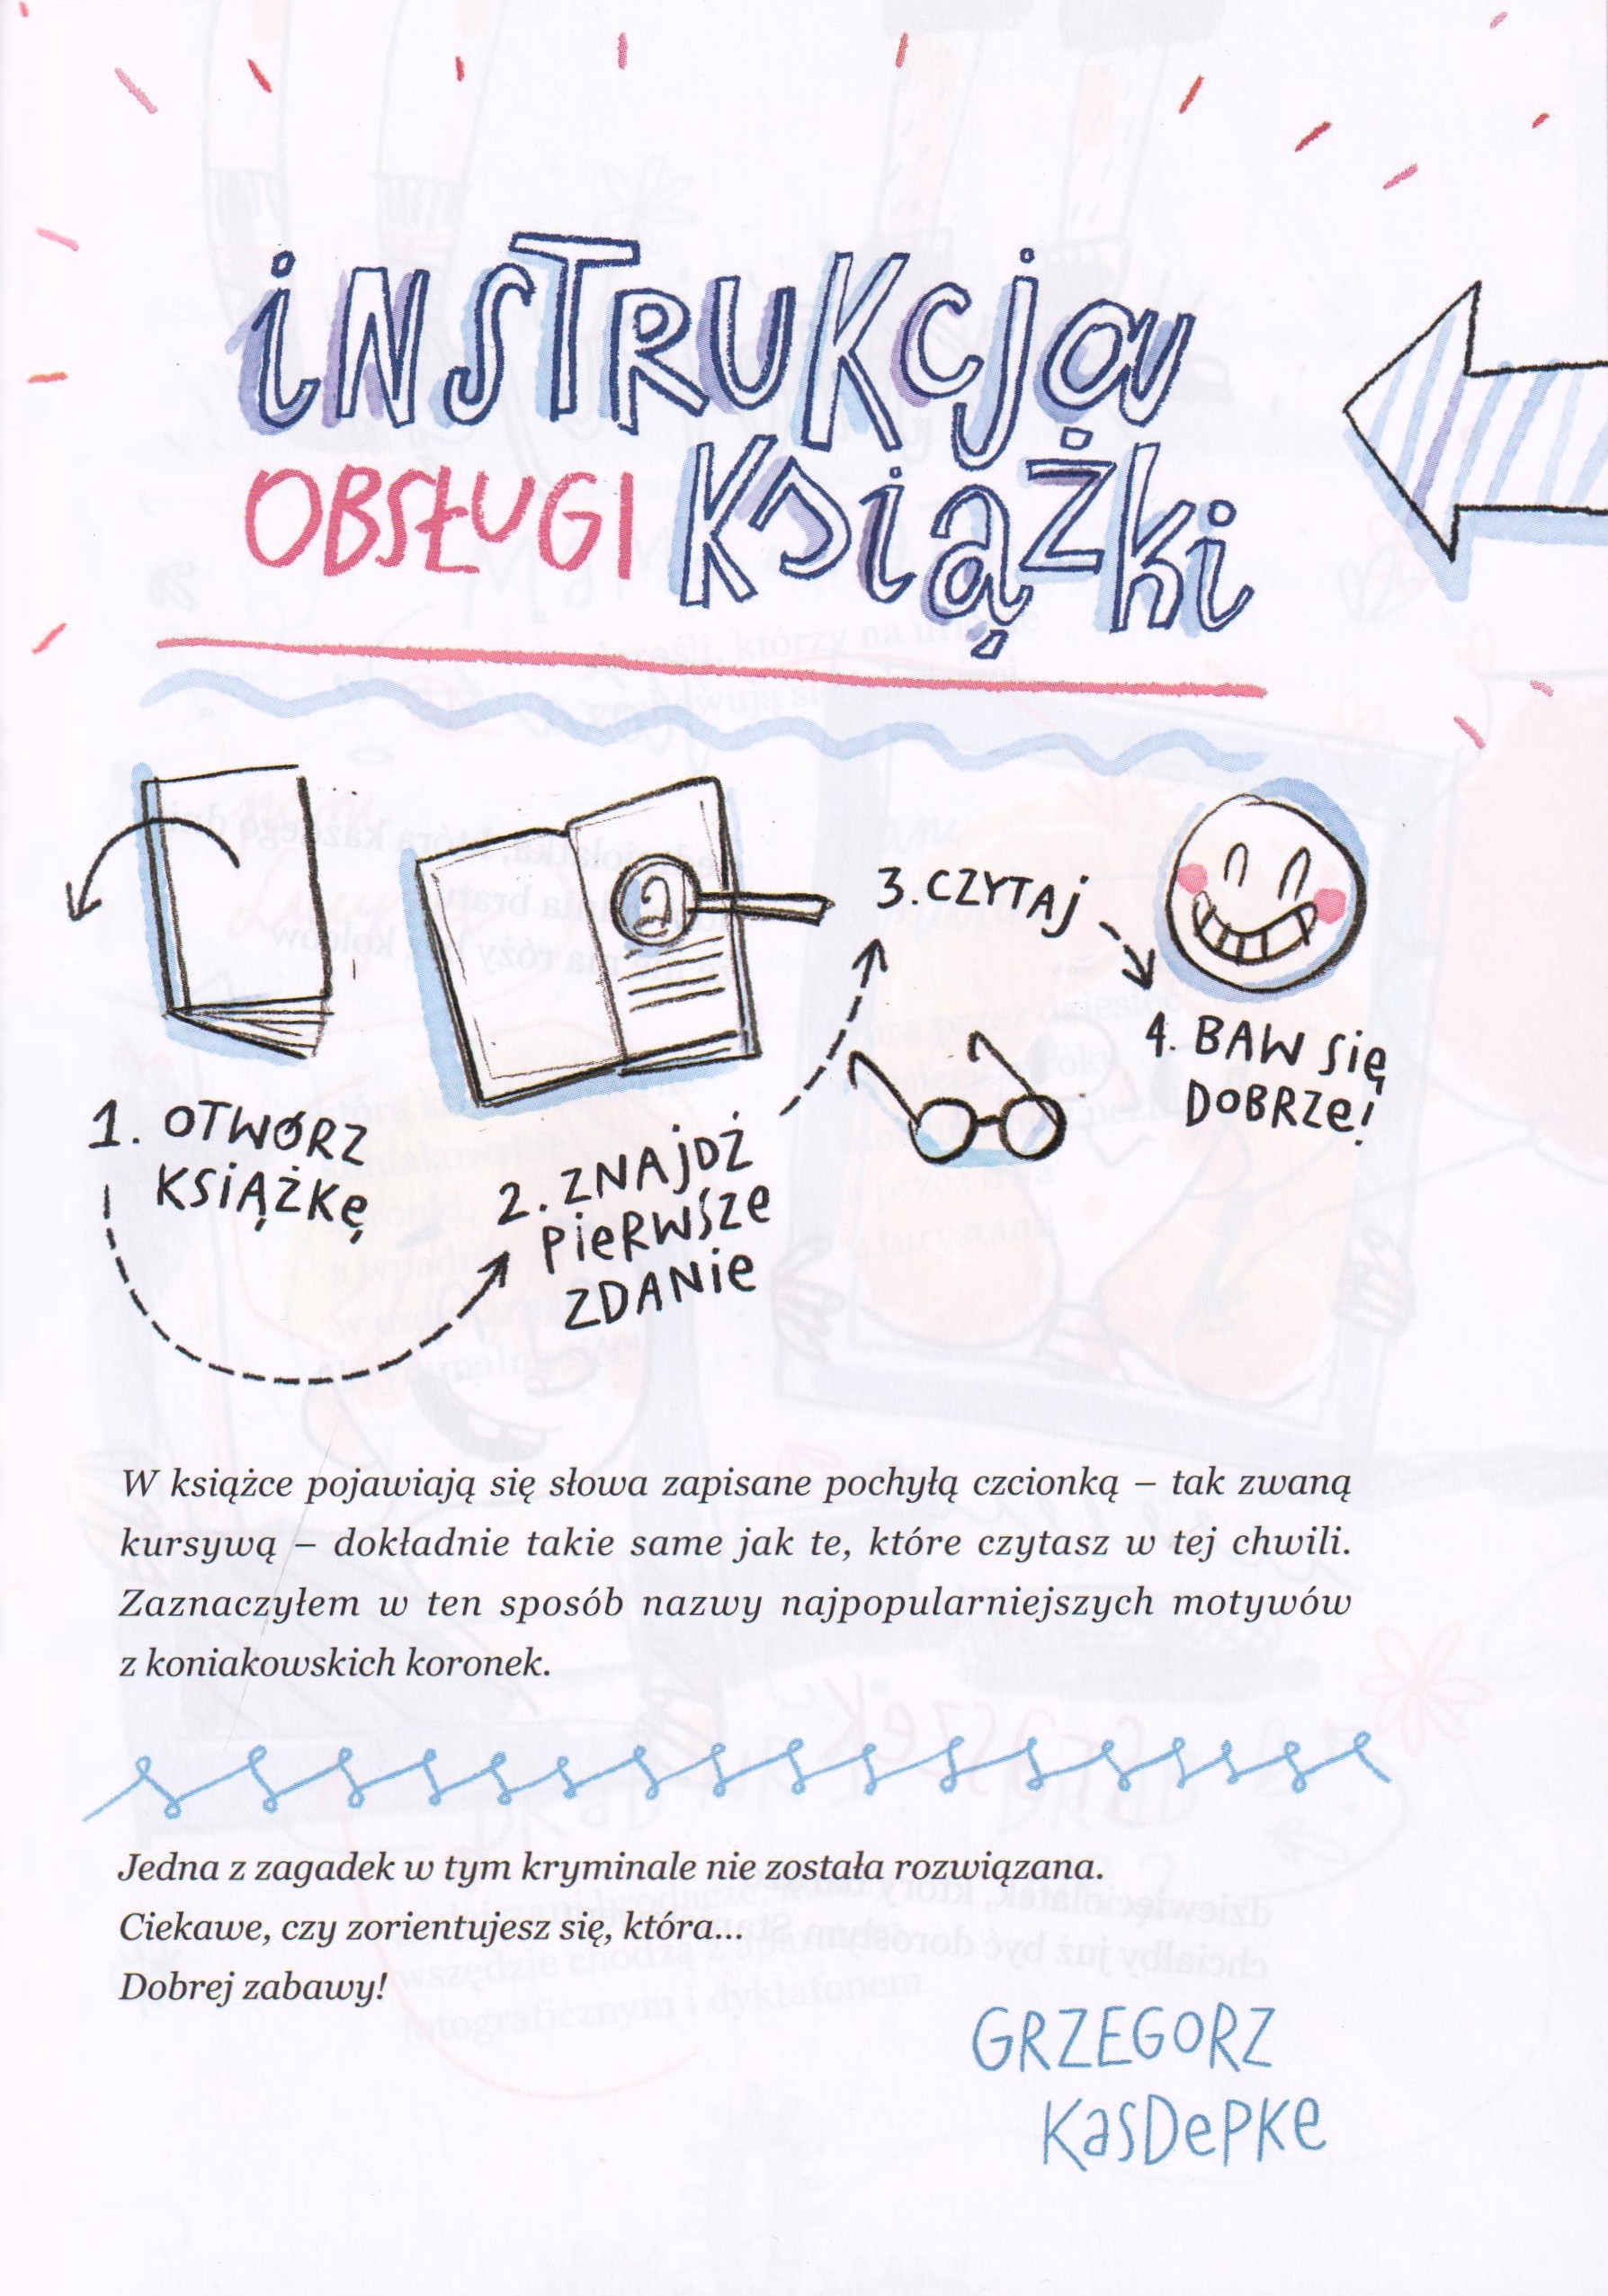 iNSTRUKCja
OBSŁUGI KSiążki
1. OTWÓRZ
KSIĄŻKę
2. ZNAjDŹ
PieRWSZe
ZDANie
3. CZYTAj
4. BAW Się
DOBRZe!
W książce pojawiają się słowa zapisane pochyłą czcionką – tak zwaną
kursywą – dokładnie takie same jak te, które czytasz w tej chwili.
Zaznaczyłem w ten sposób nazwy najpopularniejszych motywów
z koniakowskich koronek.
Jedna z zagadek w tym kryminale nie została rozwiązana.
Ciekawe, czy zorientujesz się, która...
Dobrej zabawy!
GRZEGORZ
KasDePKe